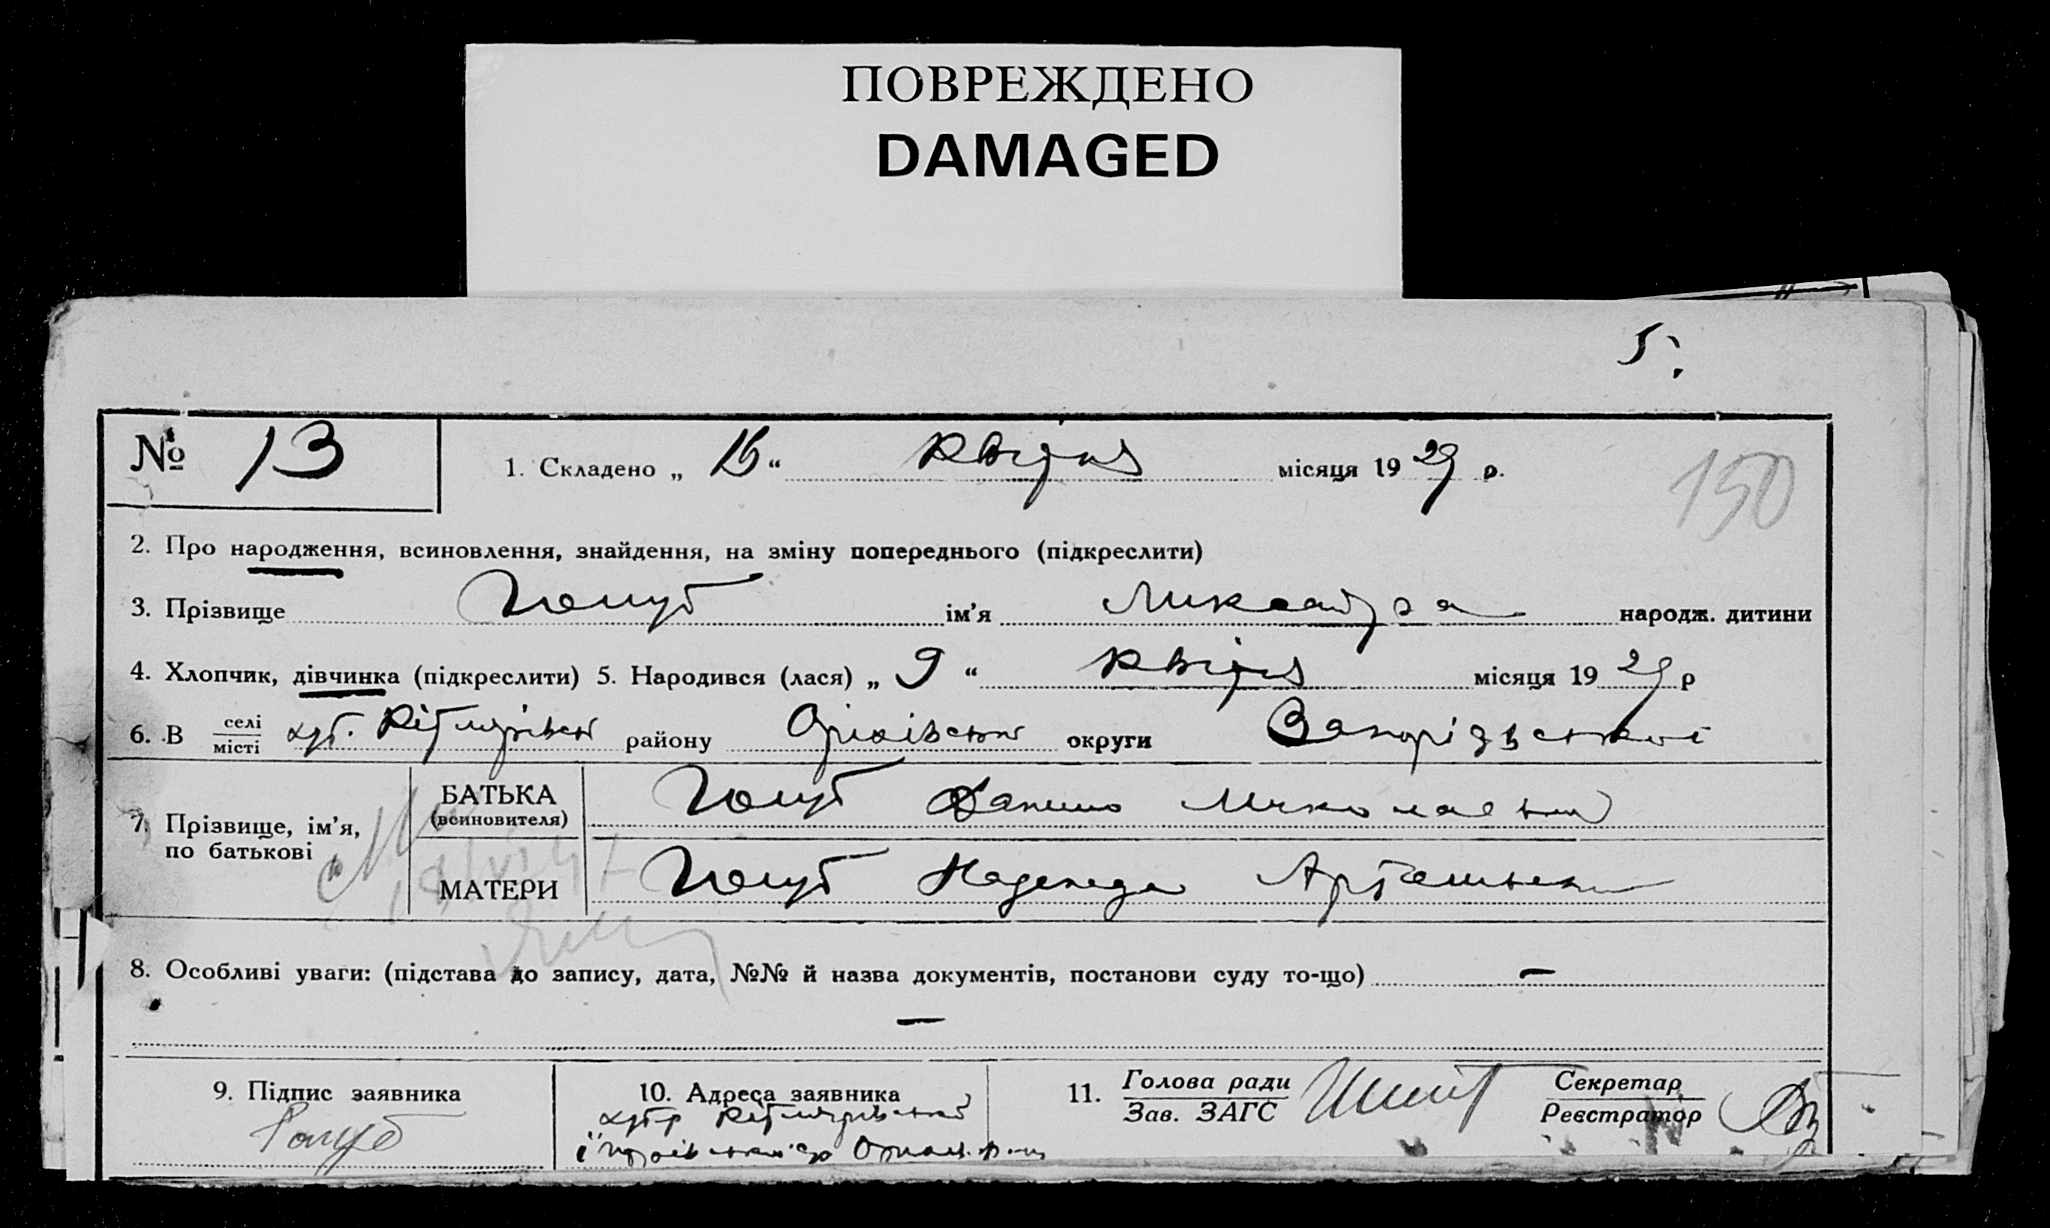 ПОВРЕЖДЕНО
DAMAGED
5.
№ 13
1. Складено „ 13 “ квітня місяця 19 29 р.
150
2. Про народження, всиновлення, знайдення, на зміну попереднього (підкреслити)
3. Прізвище Голуб ім’я народж. дитини
4. Хлопчик, дівчинка (підкреслити) 5. Народився (лася) „ 9 “ квітня місяця 19 29 р
6. В селі місті хут. району Оріхівського округи Запорізської
7. Прізвище, ім’я, по батькові
БАТЬКА (всиновителя) Голуб Данило Миколаевич
МАТЕРИ Голуб Надежда
8. Особливі уваги: (підстава до запису, дата, №№ й назва документів, постанови суду то-що) —
—
9. Підпис заявника
Голуб
10. Адреса заявника
хутр
11. Голова ради Зав. ЗАГС
Секретар Реєстратор